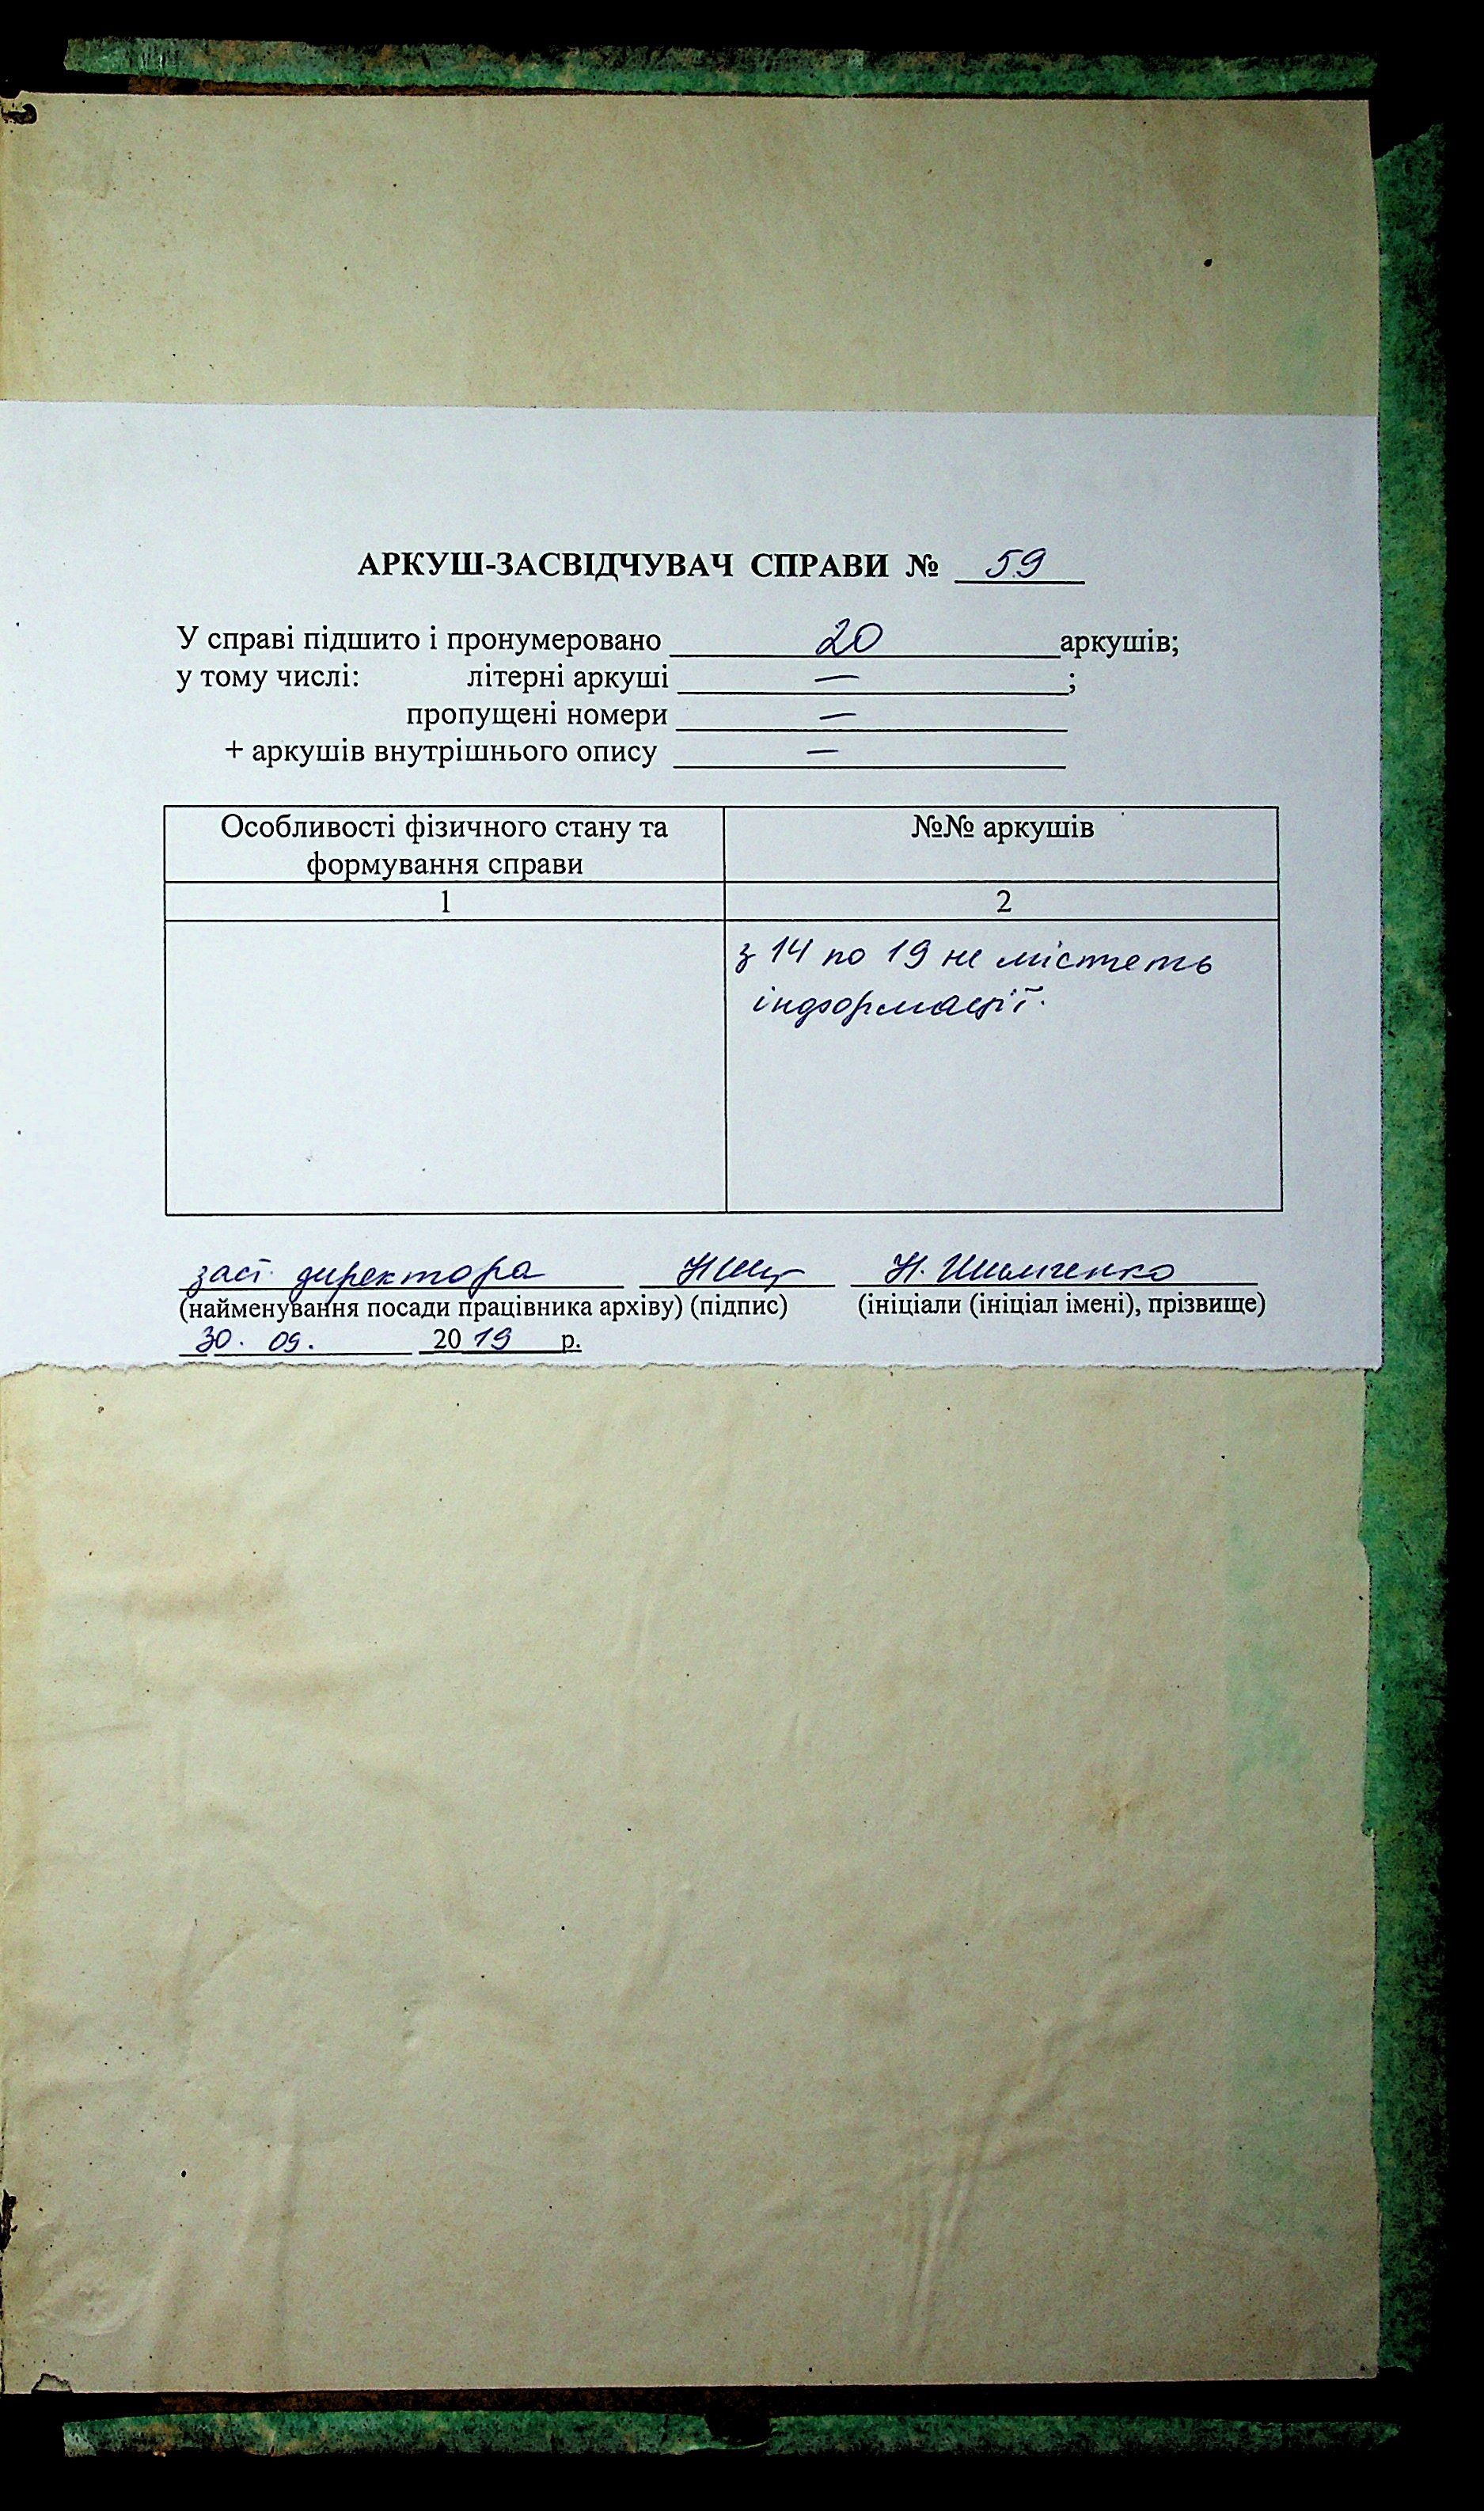 АРКУШ-ЗАСВІДЧУВАЧ СПРАВИ № 59
У справі підшито і пронумеровано 20 аркушів;
у тому числі: літерні аркуші — ;
пропущені номери —
+ аркушів внутрішнього опису —
Особливості фізичного стану та формування справи
№№ аркушів
1 2
з 14 по 19 не містеть
інформації.
заст. директора Н.
(найменування посади працівника архіву) (підпис) (ініціали (ініціал імені), прізвище)
30. 09. 2019 р.